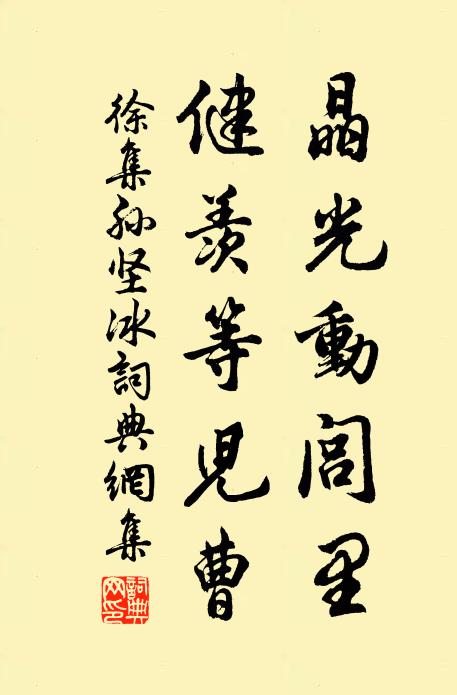 晶光動閭里
健羨等兒曹
徐集孙坚冰詞典網集
詞典網印